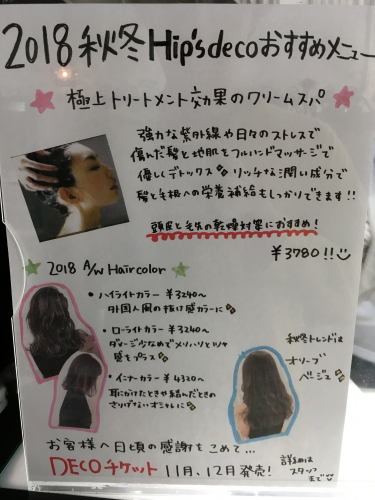 2018 秋冬 Hip's deco おすすめメニュー
極上トリートメント効果のクリームスパ
強力な紫外線や日々のストレスで
傷んだ髪と地肌をフルハンドマッサージで
優しくデトックス リッチな潤い成分で
髪と毛根への栄養補給もしっかりできます!!
頭皮と毛先の乾燥対策におすすめ!
¥3780!!
2018 A/W Haircolor
・ハイライトカラー ¥3240〜
外国人風の抜け感カラーに
・ローライトカラー ¥3240〜
ダメージ少なめでメリハリとツヤ
感をプラス
・インナーカラー ¥4320〜
耳にかけたときや結んだときの
さりげないオシャレに
秋冬トレンドは
オリーブ
ベージュ
お客様へ日頃の感謝をこめて...
DECOチケット 11月、12月発売!
詳細は
スタッフ
まで